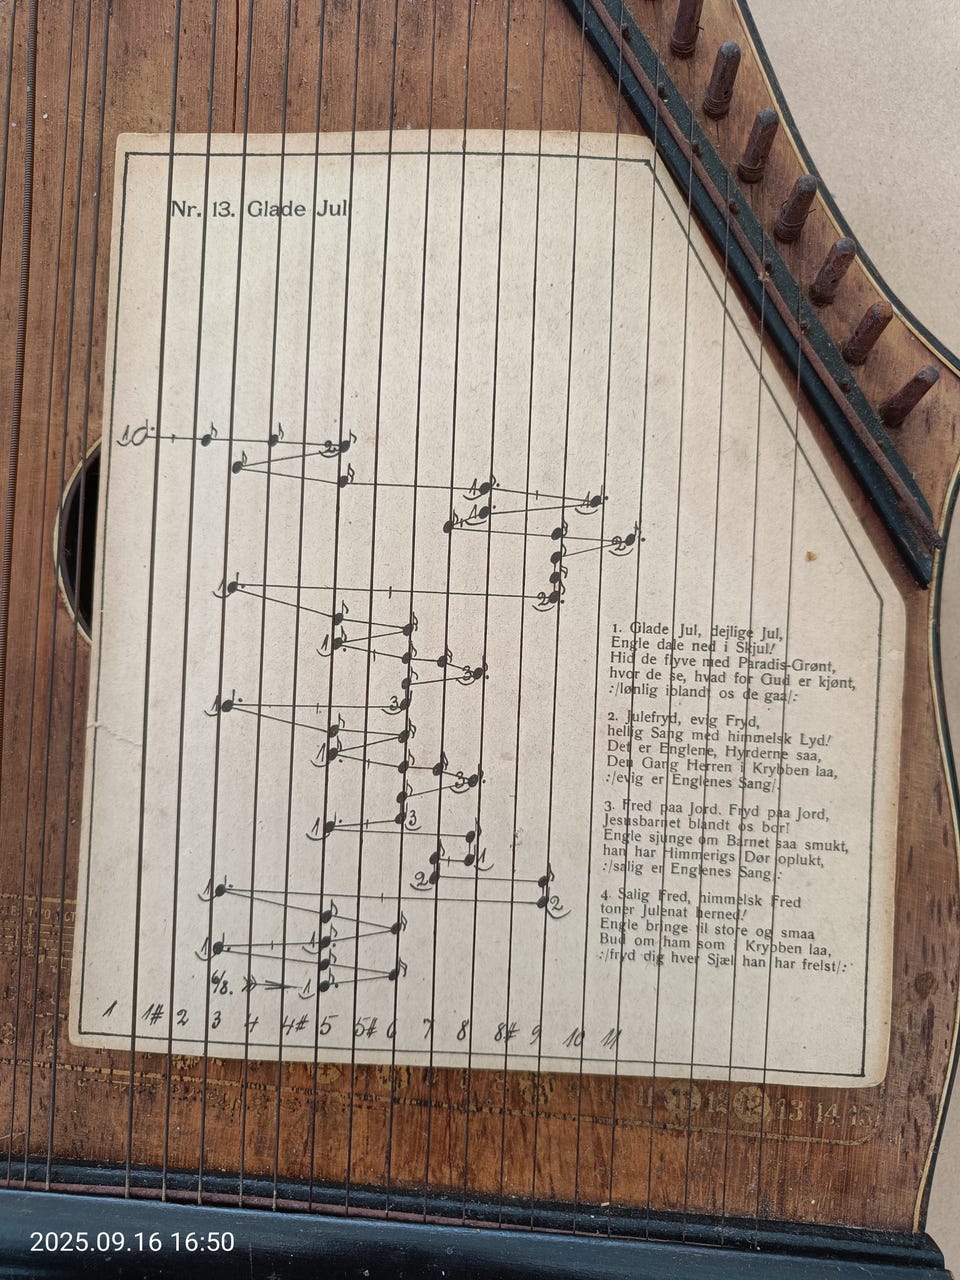 Nr. 13. Glade Jul
1. Glade Jul, dejlige Jul,
Engle dale ned i Skjul!
Hid de flyve med Paradis-Grønt,
hvor de se, hvad for Gud er kjønt,
:/lønlig iblandt os de gaa/:
2. Julefryd, evig Fryd,
hellig Sang med himmelsk Lyd!
Det er Englene, Hyrderne saa,
Den Gang Herren i Krybben laa,
:/evig er Englenes Sang/:
3. Fred paa Jord, Fryd paa Jord,
Jesusbarnet blandt os bor!
Engle sjunge om Barnet saa smukt,
han har Himmerigs Dør oplukt,
:/salig er Englenes Sang/:
4. Salig Fred, himmelsk Fred
toner Julenat herned!
Engle bringe til store og smaa
Bud om ham som i Krybben laa,
:/fryd dig hver Sjæl han har frelst/:
6/8.
1 1# 2 3 4 4# 5 5# 6 7 8 8# 9 10 11
11 12 13 14 15
2025.09.16 16:50